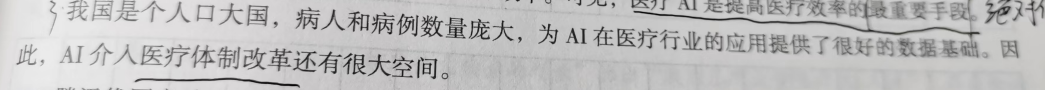 医疗 AI 是提高医疗效率的最重要手段。绝对化
3 我国是个人口大国，病人和病例数量庞大，为 AI 在医疗行业的应用提供了很好的数据基础。因
此，AI 介入医疗体制改革还有很大空间。